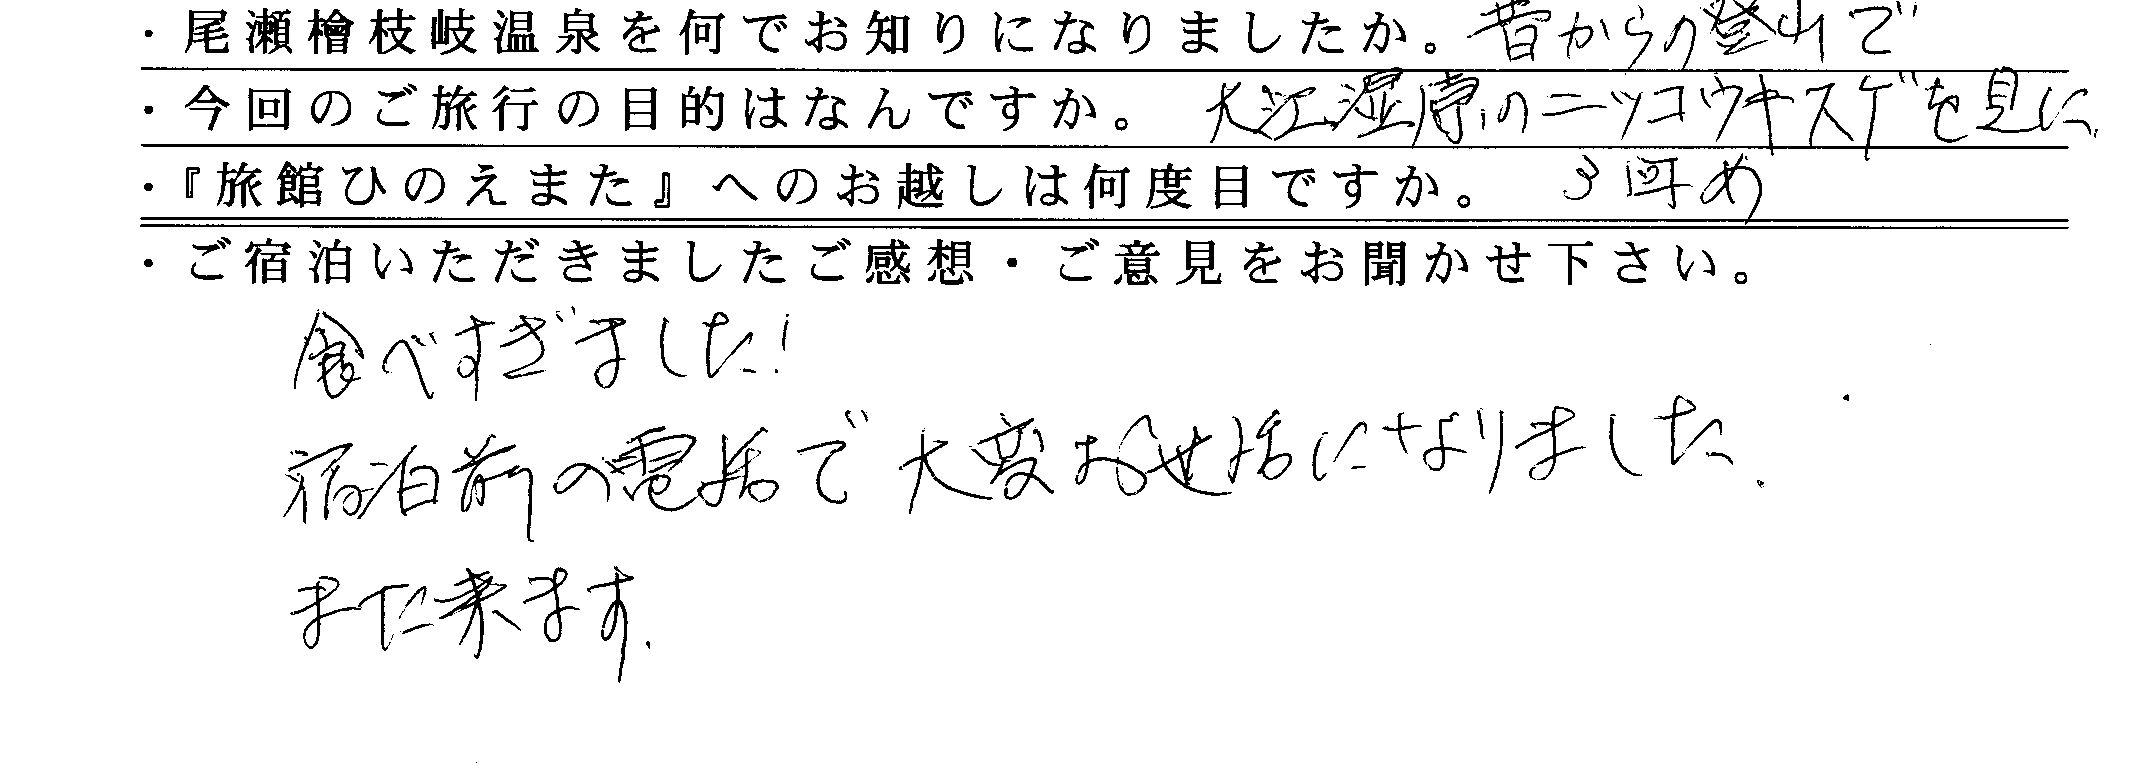 ・尾瀬檜枝岐温泉を何でお知りになりましたか。昔からの登山で
・今回のご旅行の目的はなんですか。大江湿原のニッコウキスゲを見に
・『旅館ひのえまた』へのお越しは何度目ですか。3回め
・ご宿泊いただきましたご感想・ご意見をお聞かせ下さい。
食べすぎました!
宿泊前の電話で大変お世話になりました.
また来ます.